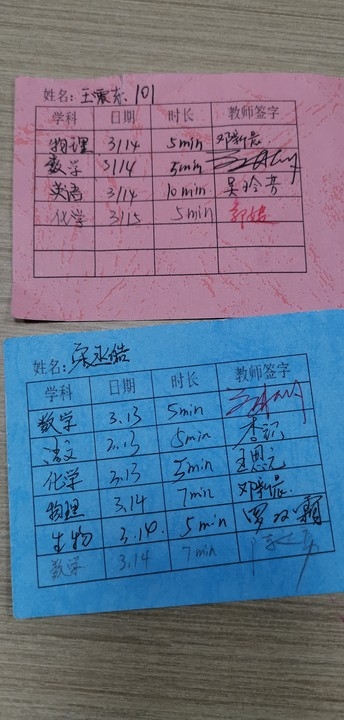 姓名: 王震东 101
学科 日期 时长 教师签字
物理 3/14 5min
数学 3/14 5min
英语 3/14 10min 吴玲芳
化学 3/15 5min 郭婧
姓名:
学科 日期 时长 教师签字
数学 3.13 5min
语文 3.13 5min
化学 3.13 5min 王思元
物理 3.14 7min
生物 3.14. 5min 罗双霸
数学 3.14 7min